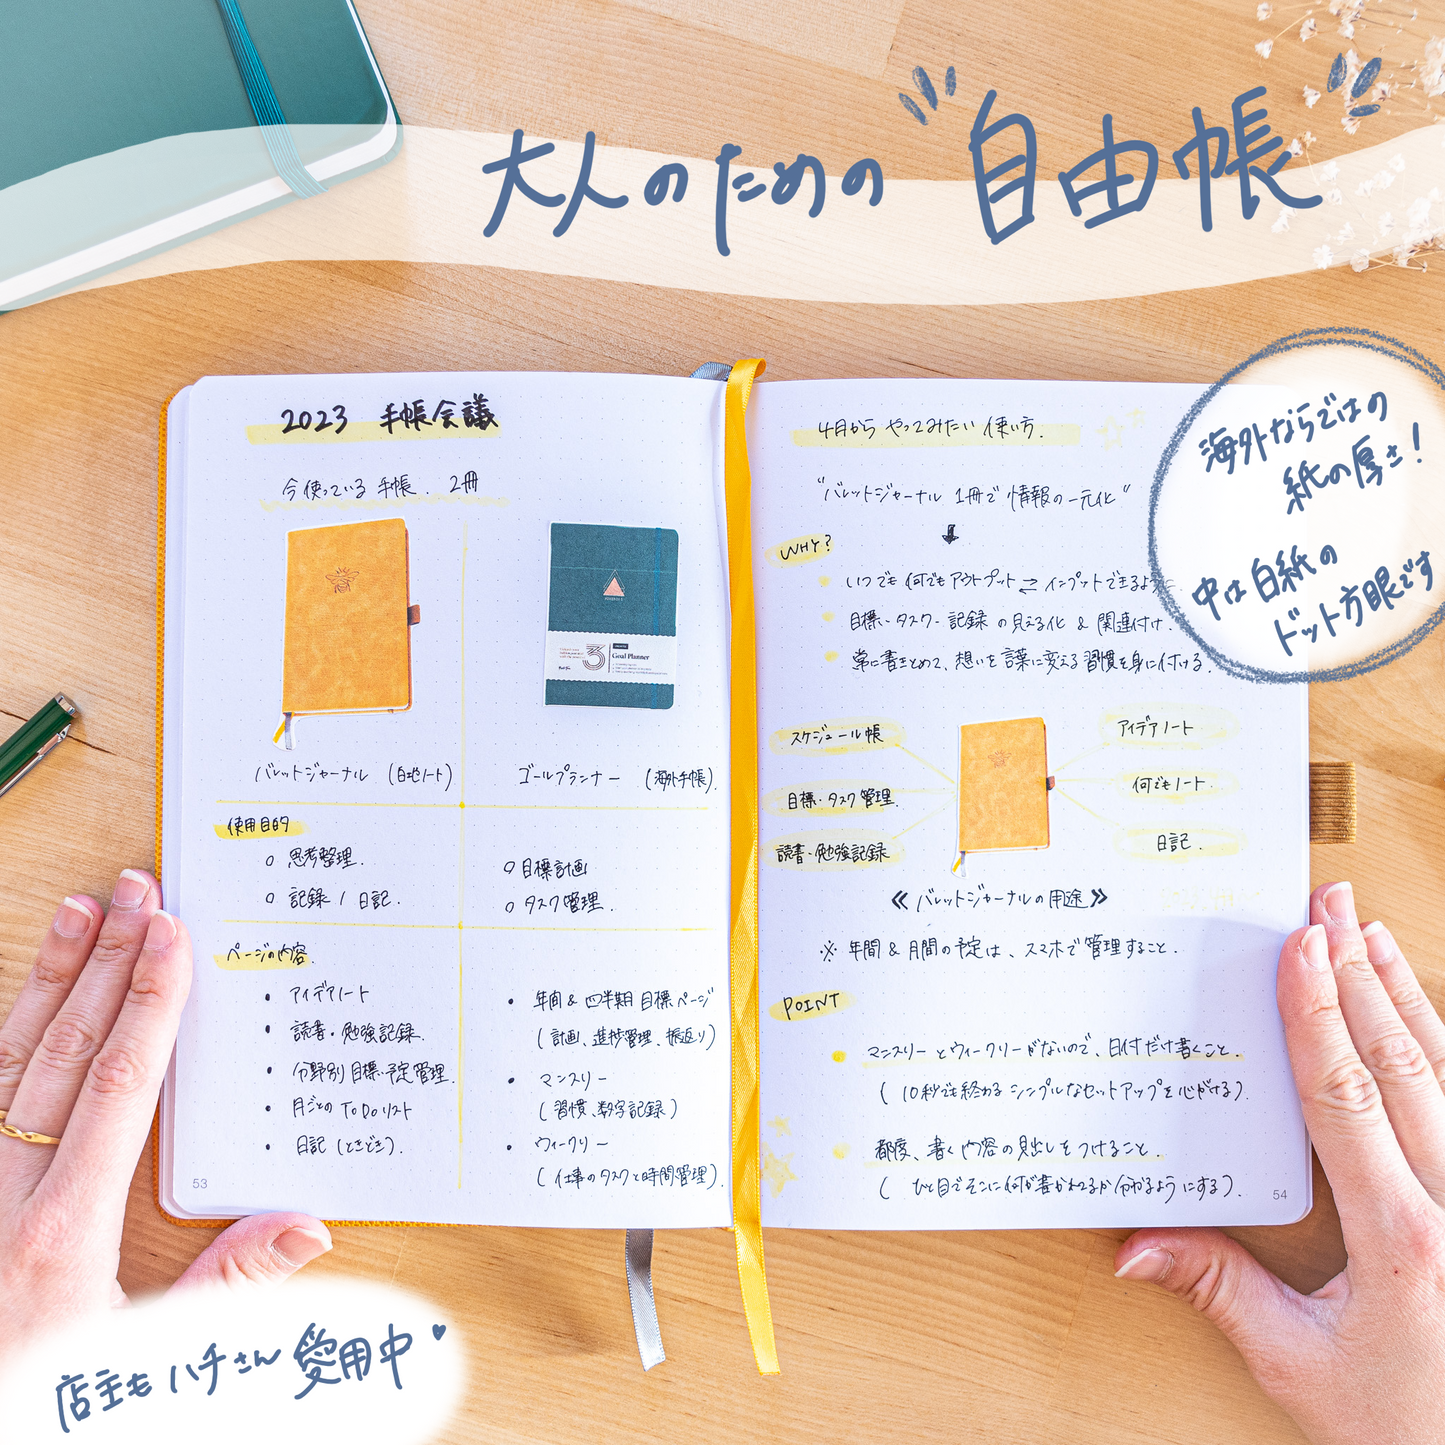 大人のための "自由帳"
海外ならではの
紙の厚さ!
中は白紙の
ドット方眼です
2023 手帳会議
今使っている手帳. 2冊
3
Goal Planner
バレットジャーナル (白地ノート)
ゴールプランナー (海外手帳).
使用目的
○ 思考整理.
○ 記録 / 日記.
○ 目標計画
○ タスク管理.
ページの内容.
• アイデアノート
• 読書・勉強記録.
• 分野別目標・予定管理.
• 月ごとの ToDoリスト
• 日記 (ときどき).
• 年間 & 四半期 目標ページ
(計画、進捗管理、振返り)
• マンスリー
(習慣、数字記録)
• ウィークリー
(仕事のタスクと時間管理).
53
4月から やってみたい 使い方.
"バレットジャーナル 1冊で 情報の一元化"
WHY?
いつでも 何でも アウトプット ⇄ インプットできるよ
目標・タスク・記録 の 見える化 & 関連付け.
常に書きとめて、想いを 言葉に変える 習慣を身に付ける.
スケジュール帳
目標・タスク管理.
読書・勉強記録
アイデアノート
何でもノート.
日記.
≪ バレットジャーナルの用途 ≫
※ 年間 & 月間の予定は、スマホで管理すること.
POINT
マンスリーとウィークリーがないので、日付だけ書くこと.
( 10秒でも終わる シンプルなセットアップを心がける).
都度、書く内容の見出しをつけること.
( ひと目でそこに何が書かれてるか分かるようにする).
54
店主も ハチさん 愛用中♥